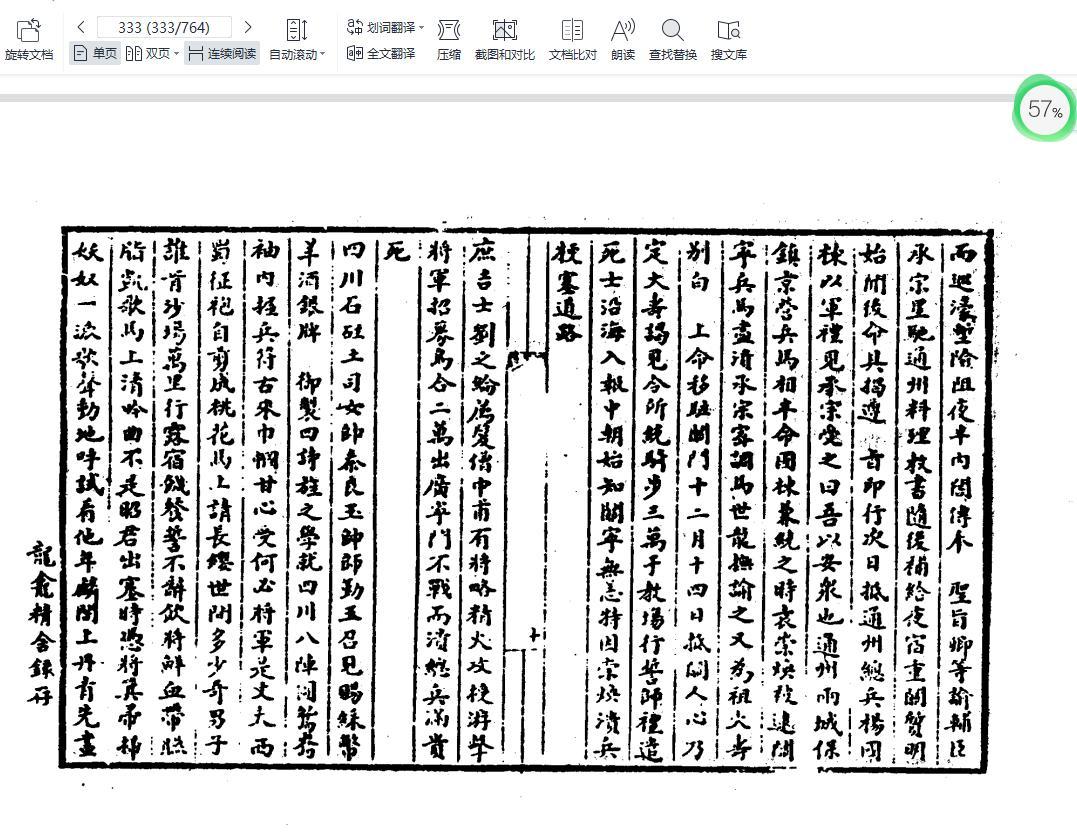 333 (333/764)
旋转文档
单页
双页
连续阅读
自动滚动
划词翻译
全文翻译
压缩
截图和对比
文档比对
朗读
查找替换
搜文库
57%
而廵濠塹險阻夜半内閣傳奉　聖旨卿等諭輔臣
承宗星馳通州料理敕書隨後補給夜宿重關質明
始開後命具揭遵　旨即行次日抵通州總兵楊國
棟以軍禮見承宗受之曰吾以安衆也通州兩城保
鎮京營兵馬相半命國棟兼統之時袁崇煥殺逮關
寧兵馬盡潰承宗家調馬世龍撫諭之又為祖大壽
别白　上命移駐關門十二月十四日抵關人心乃
定大壽謁見令所統騎步三萬于教場行誓師禮遣
死士沿海入報中朝始知關寧無恙特因崇煥潰兵
梗塞道路
十
庶吉士劉之綸薦髮僧申甫有將畧精火攻授游擊
將軍招募烏合二萬出廣寧門不戰而潰總兵滿貴
死
四川石砫土司女帥秦良玉帥師勤王召見賜綵幣
羊酒銀牌　御製四詩旌之學就四川八陣圖鴛鴦
袖内握兵符古來巾幗甘心受何必將軍是丈夫西
蜀征袍自剪成桃花馬上請長纓世間多少奇男子
誰肯沙場萬里行露宿饑餐誓不辭飲將鮮血帶胭
脂凱歌馬上清吟曲不是昭君出塞時憑將箕帚掃
妖奴一派歌聲動地呼試看他年麟閣上丹青先畫
龍龕精舍錄存